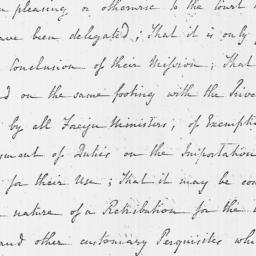 pleasing or otherwise to the Court
been delegated; That it is only
Conclusion of their Mission; That
on the same footing with the
by all Foreign Ministers, of
of Duties on the Importation
for their Use; That it may be
nature of a Retribution for the
and other customary Perquisites